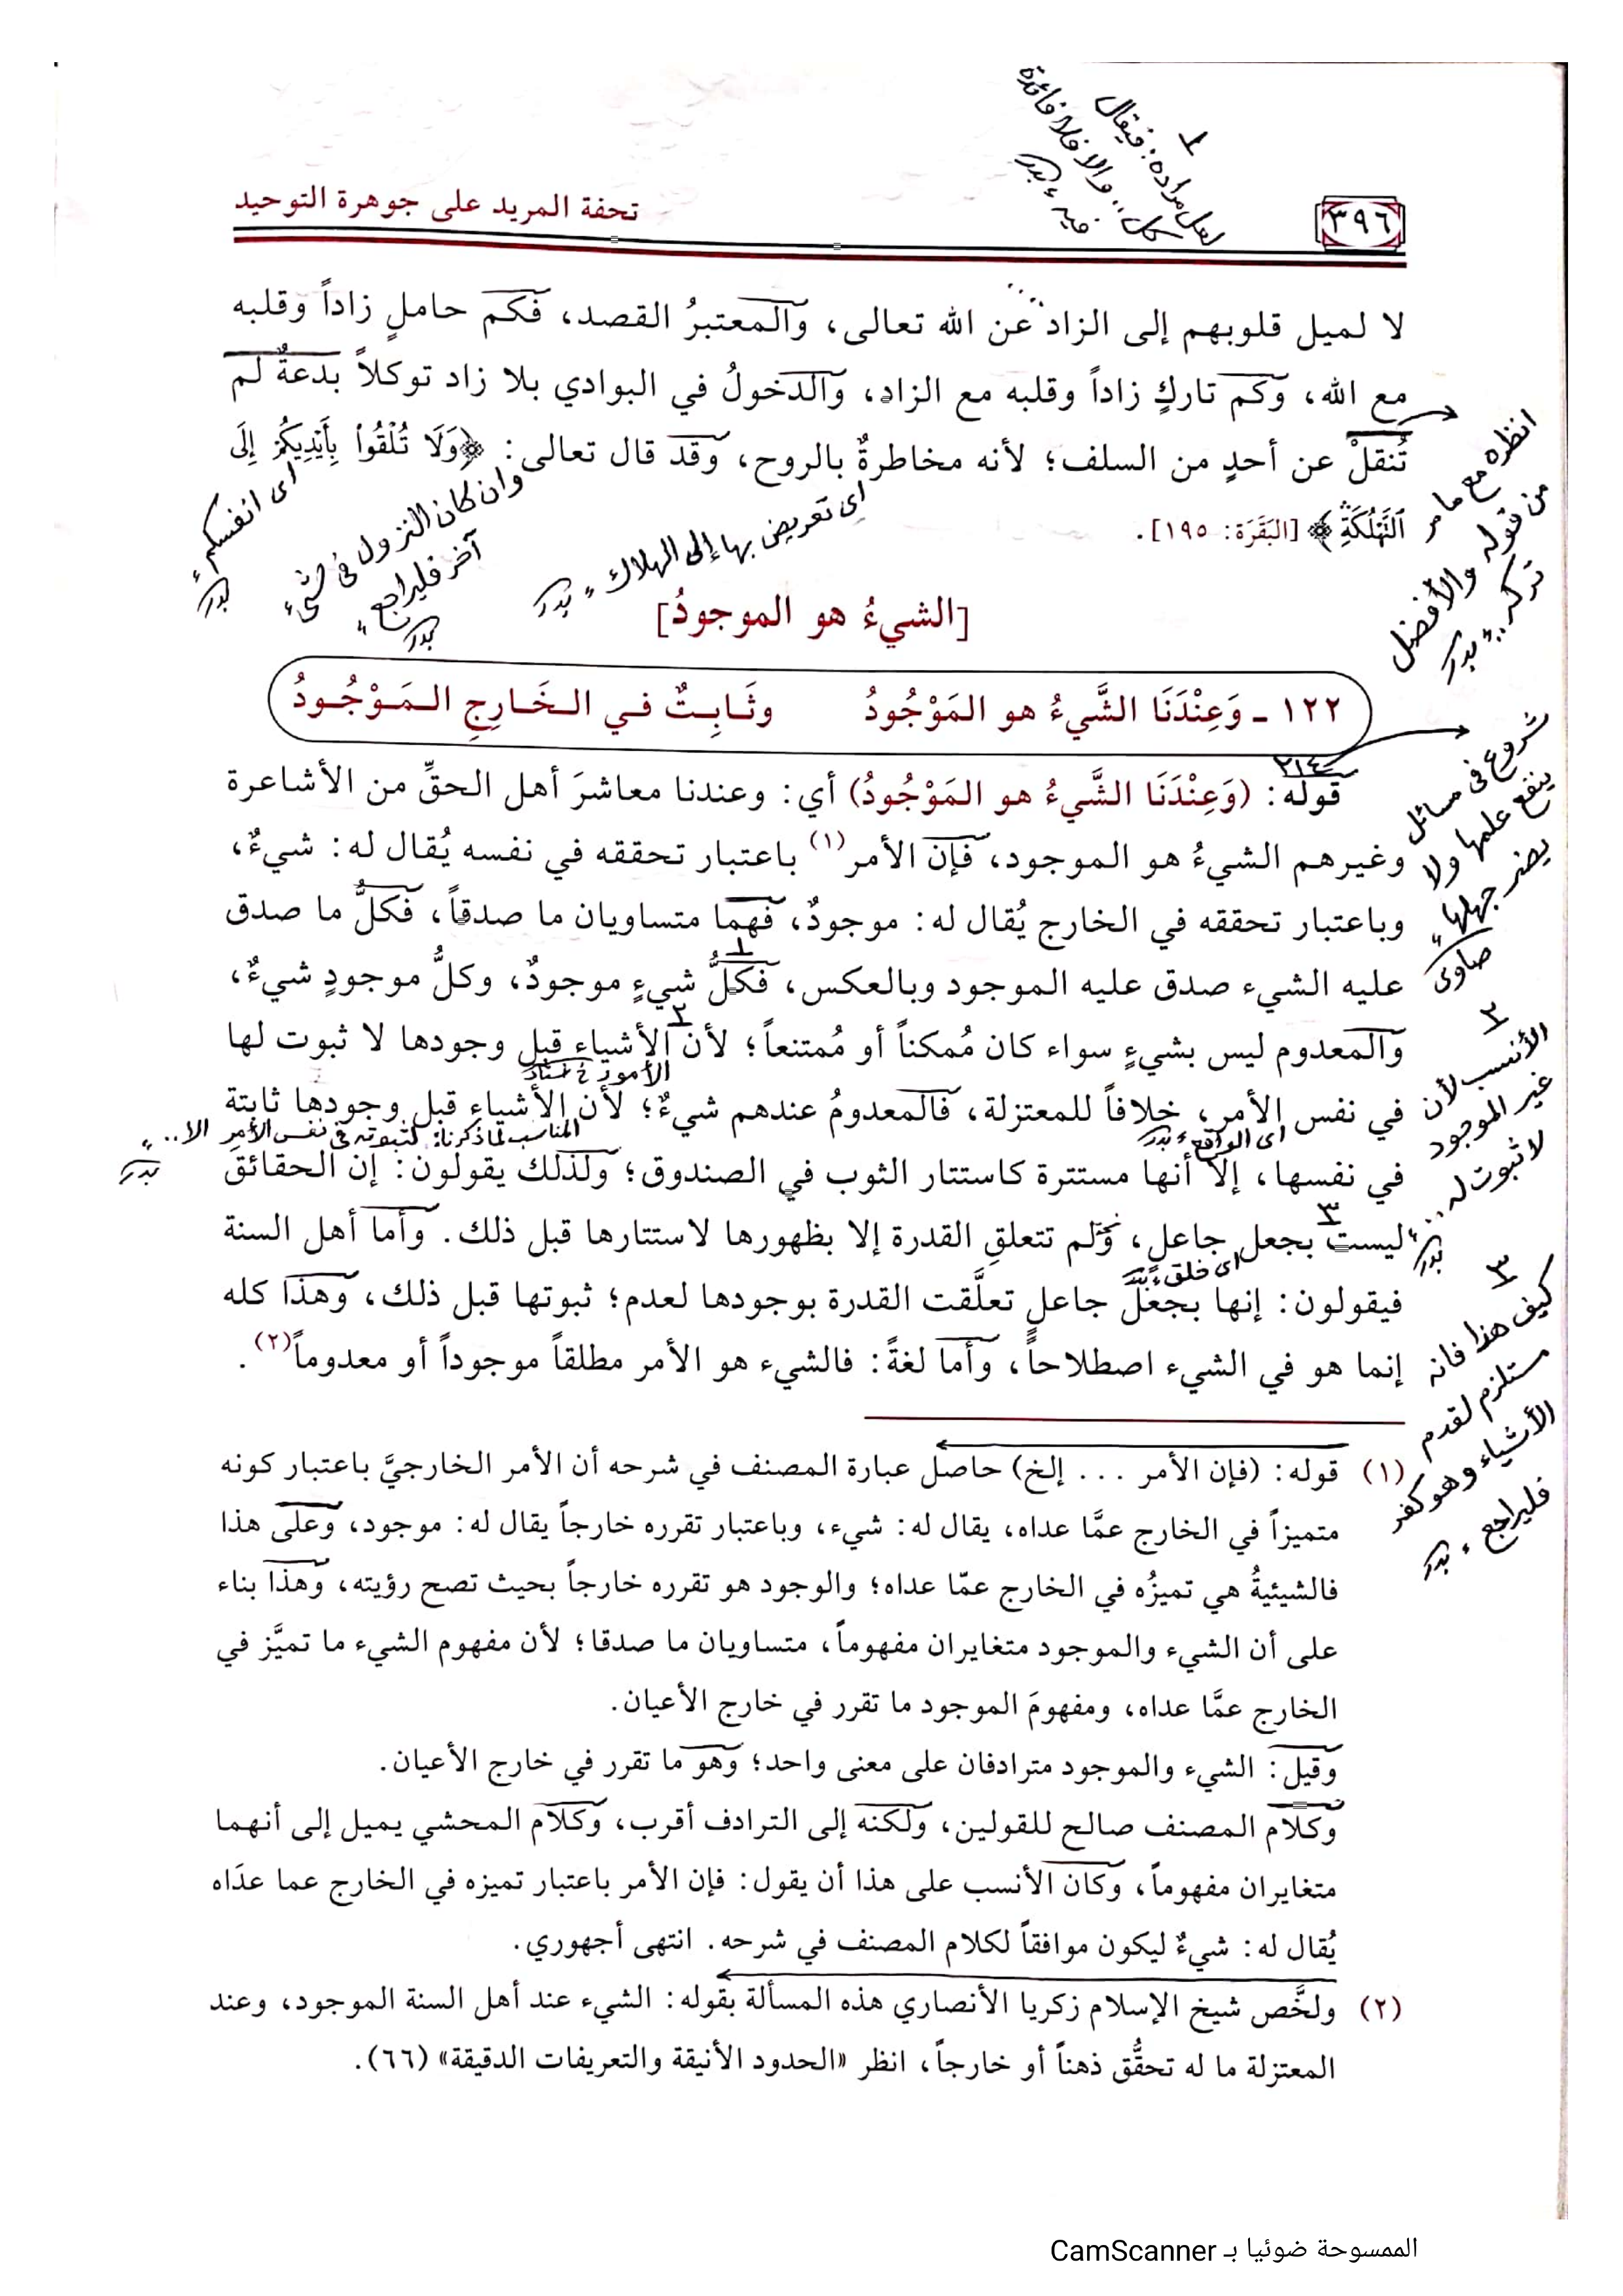 ١
لعل مراده: فيقال
كل.. والا فلا فائدة
فيه، بدر
٣٩٦
تحفة المريد على جوهرة التوحيد
لا لميل قلوبهم إلى الزاد عن الله تعالى، والمعتبرُ القصد، فكم حاملٍ زاداً وقلبه
مع الله، وكم تاركٍ زاداً وقلبه مع الزاد، والدخولُ في البوادي بلا زاد توكلاً بدعةٌ لم
تُنقلْ عن أحدٍ من السلف؛ لأنه مخاطرةٌ بالروح، وقد قال تعالى: ﴿وَلَا تُلْقُوا۟ بِأَيْدِيكُمْ إِلَى
ٱلتَّهْلُكَةِ﴾ [البَقَرَة: ١٩٥].
انظره مع ما مر
من قوله والأفضل
تركه.. بدر
اى انفسكم، بدر
وان كان النزول فى شىء
آخر فليراجع، بدر
اى تعريض بها إلى الهلاك، بدر
[الشيءُ هو الموجودُ]
١٢٢ ـ وَعِنْدَنَا الشَّيءُ هو المَوْجُودُ وثَابِتٌ في الخَارِجِ المَوْجُودُ
٢١٤
قوله: (وَعِنْدَنَا الشَّيءُ هو المَوْجُودُ) أي: وعندنا معاشرَ أهل الحقِّ من الأشاعرة
وغيرهم الشيءُ هو الموجود، فإن الأمر(١) باعتبار تحققه في نفسه يُقال له: شيءٌ،
وباعتبار تحققه في الخارج يُقال له: موجودٌ، فهما متساويان ما صدقاً، فكلُّ ما صدق
عليه الشيء صدق عليه الموجود وبالعكس، فكلُّ شيءٍ موجودٌ، وكلُّ موجودٍ شيءٌ،
والمعدوم ليس بشيءٍ سواء كان مُمكناً أو مُمتنعاً؛ لأن الأشياء قبل وجودها لا ثبوت لها
في نفس الأمر، خلافاً للمعتزلة، فالمعدومُ عندهم شيءٌ؛ لأن الأشياء قبل وجودها ثابتة
في نفسها، إلا أنها مستترة كاستتار الثوب في الصندوق؛ ولذلك يقولون: إن الحقائقَ
ليست بجعل جاعل، ولم تتعلقِ القدرة إلا بظهورها لاستتارها قبل ذلك. وأما أهل السنة
فيقولون: إنها بجعل جاعل تعلَّقت القدرة بوجودها لعدم؛ ثبوتها قبل ذلك، وهذا كله
إنما هو في الشيء اصطلاحاً، وأما لغةً: فالشيء هو الأمر مطلقاً موجوداً أو معدوماً(٢).
شروع فى مسائل
ينفع علمها ولا
يضر جهلها،
صاوى
٢
الأنسب لأن
غير الموجود
لا ثبوت له..
بدر
اى الواقع، بدر
المناسب لما ذكرنا: لثبوته فى نفس الأمر الا..
بدر
اى خلق، بدر
٣
كيف هذا فانه
مستلزم لقدم
الأشياء وهو كفر
فليراجع، بدر
(١) قوله: (فإن الأمر ... إلخ) حاصل عبارة المصنف في شرحه أن الأمر الخارجيَّ باعتبار كونه
متميزاً في الخارج عمَّا عداه، يقال له: شيء، وباعتبار تقرره خارجاً يقال له: موجود، وعلى هذا
فالشيئيةُ هي تميزُه في الخارج عمّا عداه؛ والوجود هو تقرره خارجاً بحيث تصح رؤيته، وهذا بناء
على أن الشيء والموجود متغايران مفهوماً، متساويان ما صدقا؛ لأن مفهوم الشيء ما تميَّز في
الخارج عمَّا عداه، ومفهومَ الموجود ما تقرر في خارج الأعيان.
وقيل: الشيء والموجود مترادفان على معنى واحد؛ وهو ما تقرر في خارج الأعيان.
وكلام المصنف صالح للقولين، ولكنه إلى الترادف أقرب، وكلام المحشي يميل إلى أنهما
متغايران مفهوماً، وكان الأنسب على هذا أن يقول: فإن الأمر باعتبار تميزه في الخارج عما عدَاه
يُقال له: شيءٌ ليكون موافقاً لكلام المصنف في شرحه. انتهى أجهوري.
(٢) ولخَّص شيخ الإسلام زكريا الأنصاري هذه المسألة بقوله: الشيء عند أهل السنة الموجود، وعند
المعتزلة ما له تحقُّق ذهناً أو خارجاً، انظر «الحدود الأنيقة والتعريفات الدقيقة» (٦٦).
الممسوحة ضوئيا بـ CamScanner